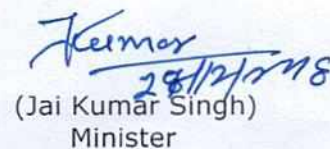 Jkumar
28/12/2018
(Jai Kumar Singh)
Minister